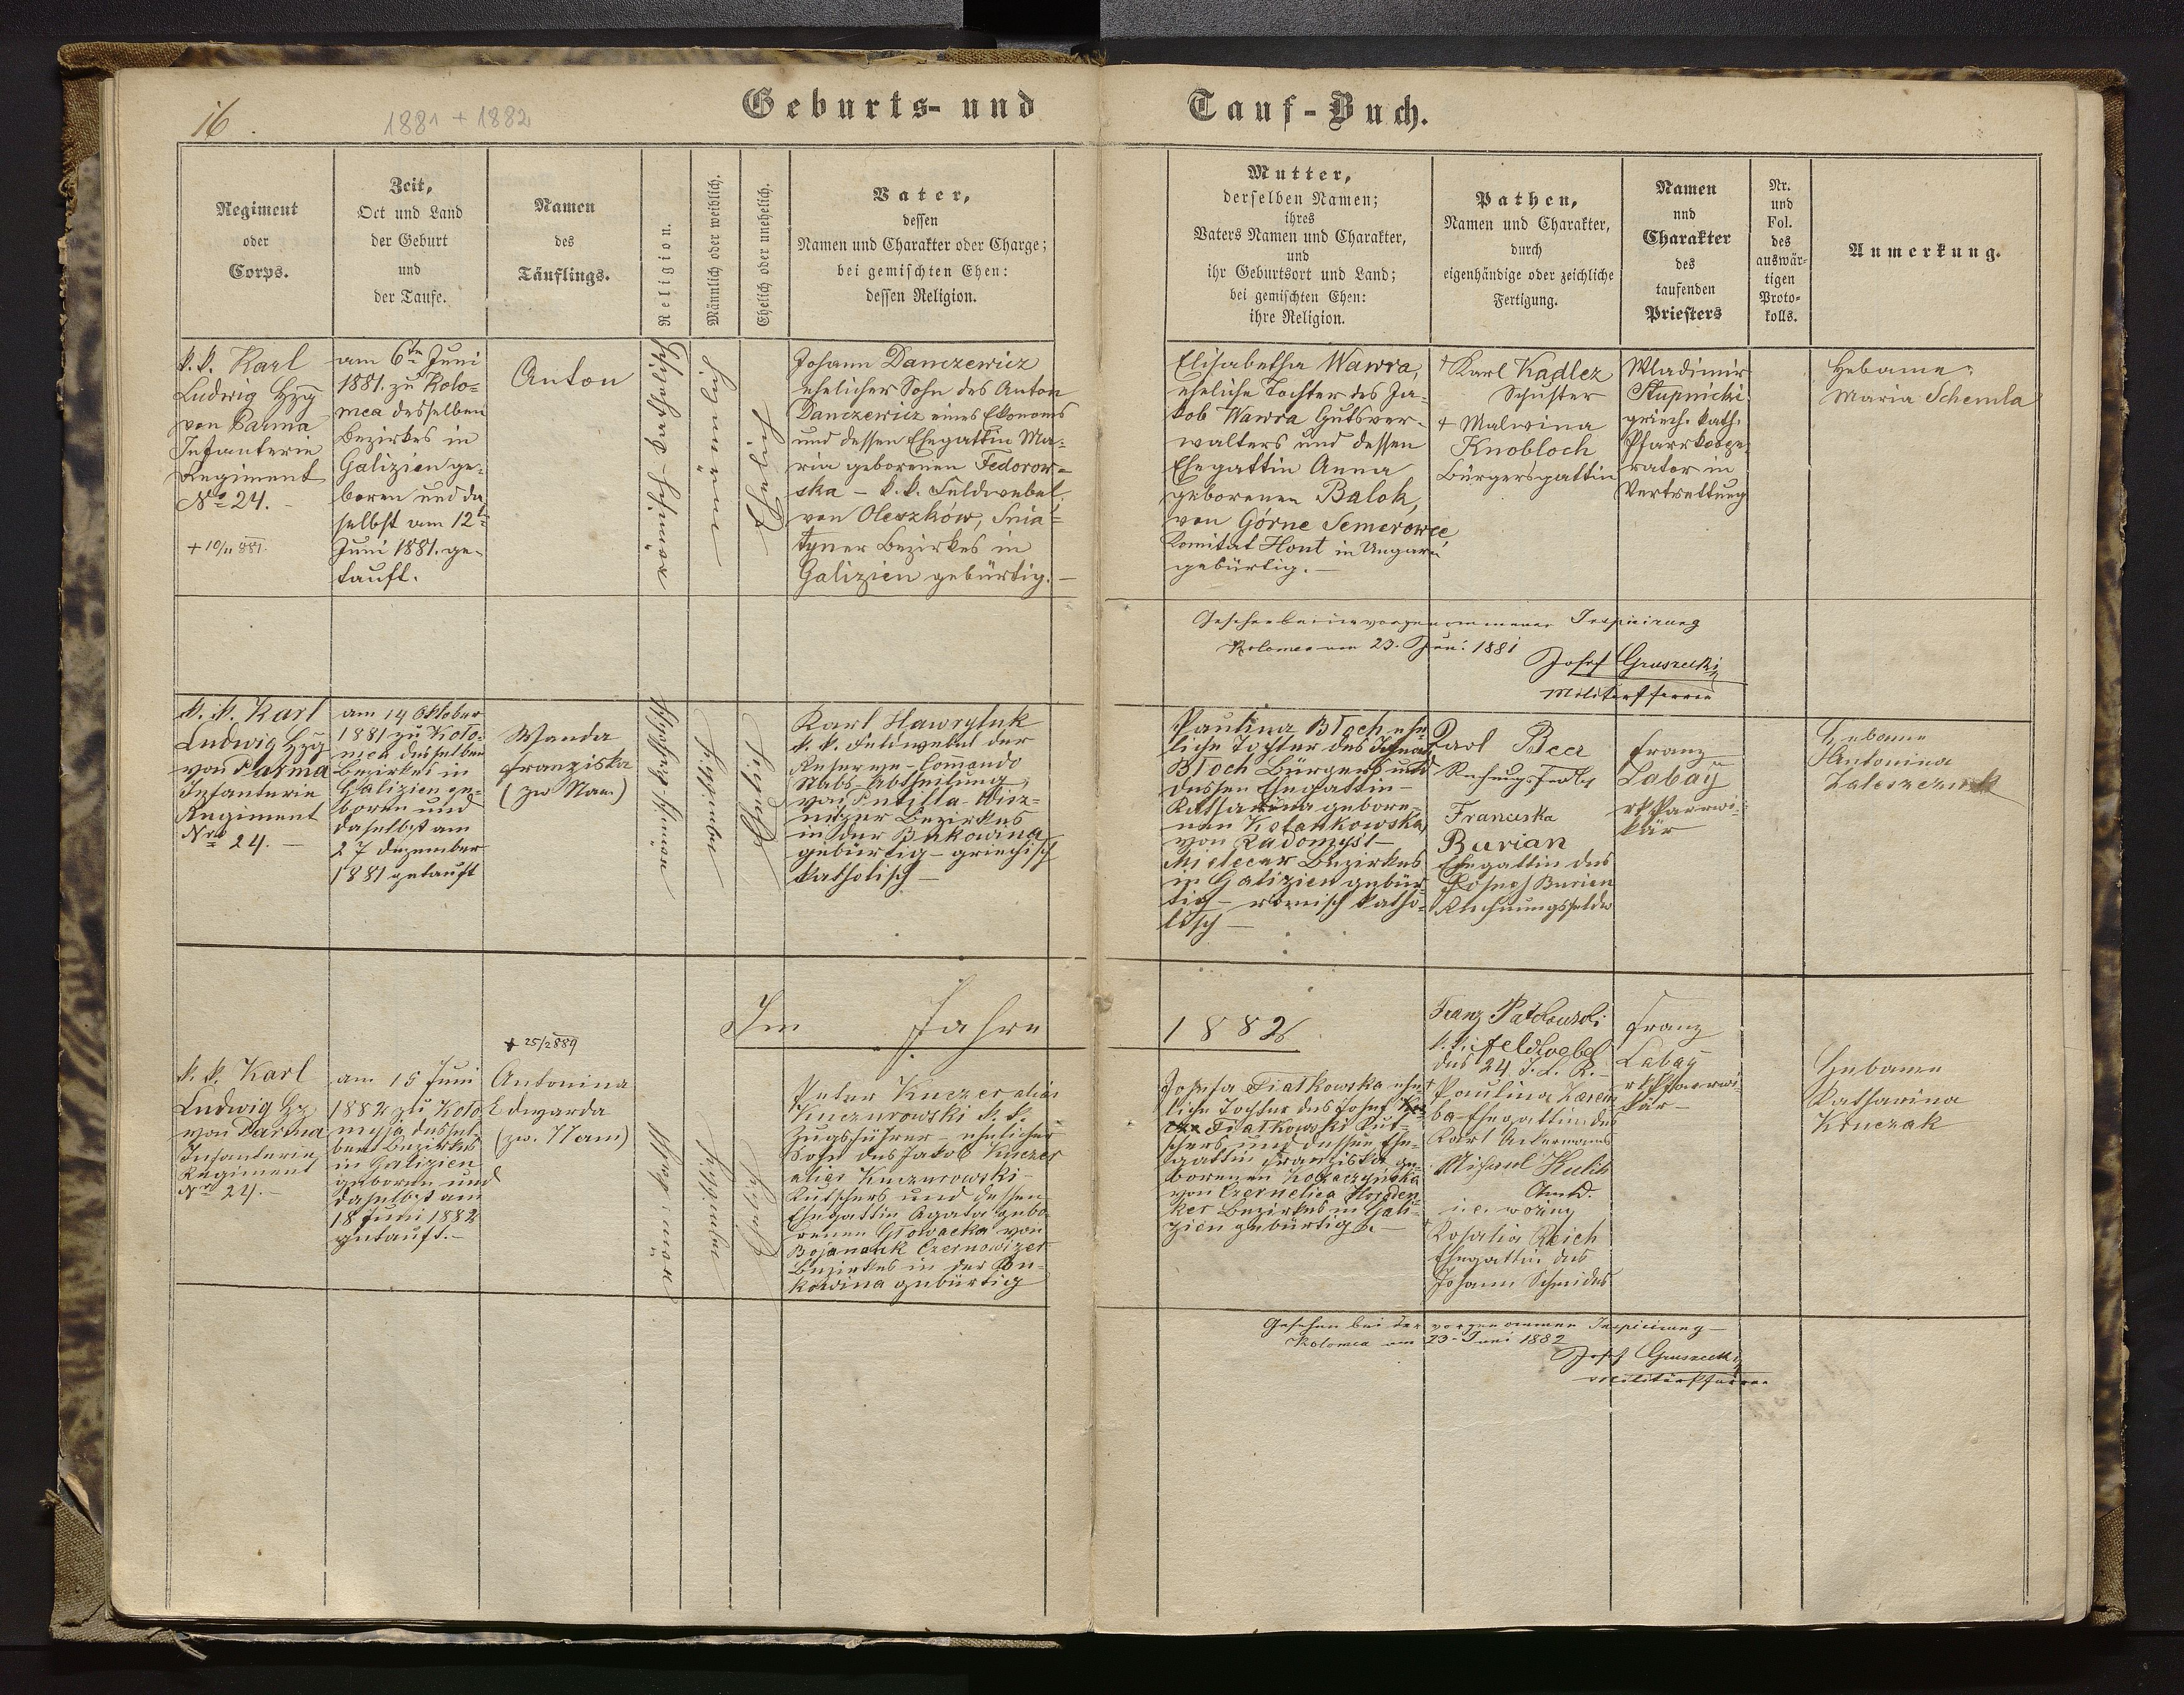 16.
1881 + 1882
Geburts- und
Tauf-Buch.
Regiment
oder
Corps.
Zeit,
Ort und Land
der Geburt
und
der Taufe.
Namen
des
Täuflings.
Religion.
Männlich oder weiblich.
Ehelich oder unehelich.
Vater,
dessen
Namen und Charakter oder Charge;
bei gemischten Ehen:
dessen Religion.
Mutter,
derselben Namen;
ihres
Vaters Namen und Charakter,
und
ihr Geburtsort und Land;
bei gemischten Ehen:
ihre Religion.
Pathen,
Namen und Charakter,
durch
eigenhändige oder zeichliche
Fertigung.
Namen
und
Charakter
des
taufenden
Priesters
Nr.
und
Fol.
des
auswär-
tigen
Proto-
kolls.
Anmerkung.
k.k. Karl
Ludwig Hzg
von Parma
Infanterie
Regiment
No 24.
am 6ten Juni
1881. zu Kolo=
mea desselben
Bezirkes in
Galizien ge=
boren und da
selbst am 12t
Juni 1881. ge-
tauft.
Anton
Johann Danczewicz
ehelicher Sohn des Anton
Danczewicz eines Ekonoms
und dessen Ehegattin Ma=
ria geborenen Fedorow=
ska - k.k. Feldwebel
von Oleszków, Snia=
tyner Bezirkes in
Galizien gebürtig. -
Elisabetha Wawra,
eheliche Tochter des Ja-
kob Wawra Gutsver-
walters und dessen
Ehegattin Anna
geborenen Balok,
von Górne Semerowce
Komitat Hont in Ungarn
gebürtig. -
+ Karl Kadlez
Schuster
+ Malwina
Knobloch
Bürgersgattin
Wladimir
Stupnicki
griech. kath.
Pfarrkoope-
rator in
Vertrettung
Hebame:
Maria Schemla
Inspicirung
Kolomea am 23. Juni 1881
Josef Gruszecki
Militärpfarrer
k.k. Karl
Ludwig Hzg
von Parma
Infanterie
Regiment
Nro 24. -
am 14 Oktober
1881 zu Kolo=
mea desselben
Bezirkes in
Galizien ge=
boren und
daselbst am
27 Dezember
1881 getauft
Wanda
Franziska
(zw Nam)
Karl Hawryluk
k.k. Feldwebel der
Reserve-Commando
Stabs-Abtheilung
von Putilla - Wisz=
nitzer Bezirkes
in der Bukowina
gebürtig - griechisch
katholisch -
Paulina Bloch ehe=
liche Tochter des
Bloch Bürgers und
dessen Ehegattin -
Katharina gebore-
nen
von Radomysl -
Mielecer Bezirkes
in Galizien gebür=
tig - römisch katho=
lisch -
Karl Beer
Franciska
Burian
Ehegattin des
Josef Burian
Rechnungsfeldw
Franz
Labaÿ
rk Pfarrvi=
kär
Hebame
Antonina
Zaleszczuk
Im Jahre
1882
k.k. Karl
Ludwig Hz
von Parma
Infanterie
Regiment
Nro 24. -
am 15 Juni
1882 zu Kolo
myja dessel-
ben Bezirkes
in Galizien
geboren und
daselbst am
18 Juni 1882
getauft. -
Antonina
Edwarda
(zw. Nam)
Peter Kuczer alias
Kuczurowski k.k.
Zugsführer - ehelicher
Sohn des Jakob Kuczer
alias Kuczurowski -
Kutschers und dessen
Ehegattin Agata gebo-
renen Glowacka von
Czernowizer
Bezirkes in der Bu-
kowina gebürtig
Josefa Fiatkowska ehe=
liche Tochter des Josef
Fiatkowski Kut-
schers und dessen Ehe-
gattin Franziska ge-
borenen
von Czernelica Horoden
ker Bezirkes in Gali-
zien gebürtig. -
Franz
k.k. Feldwebel
des 24. I. L. R. -
Paulina
Ehegattin des
Karl
Michael Kulik
Rosalia Reich
Ehegattin des
Johann
Franz
Labaÿ
rk Pfarrvi-
kär -
Hebame
Katharina
Kruczak
Gesehen bei der vorgenommen Inspicirung -
Kolomea am 23 - Juni 1882
Josef Gruszecki
Militärpfarrer